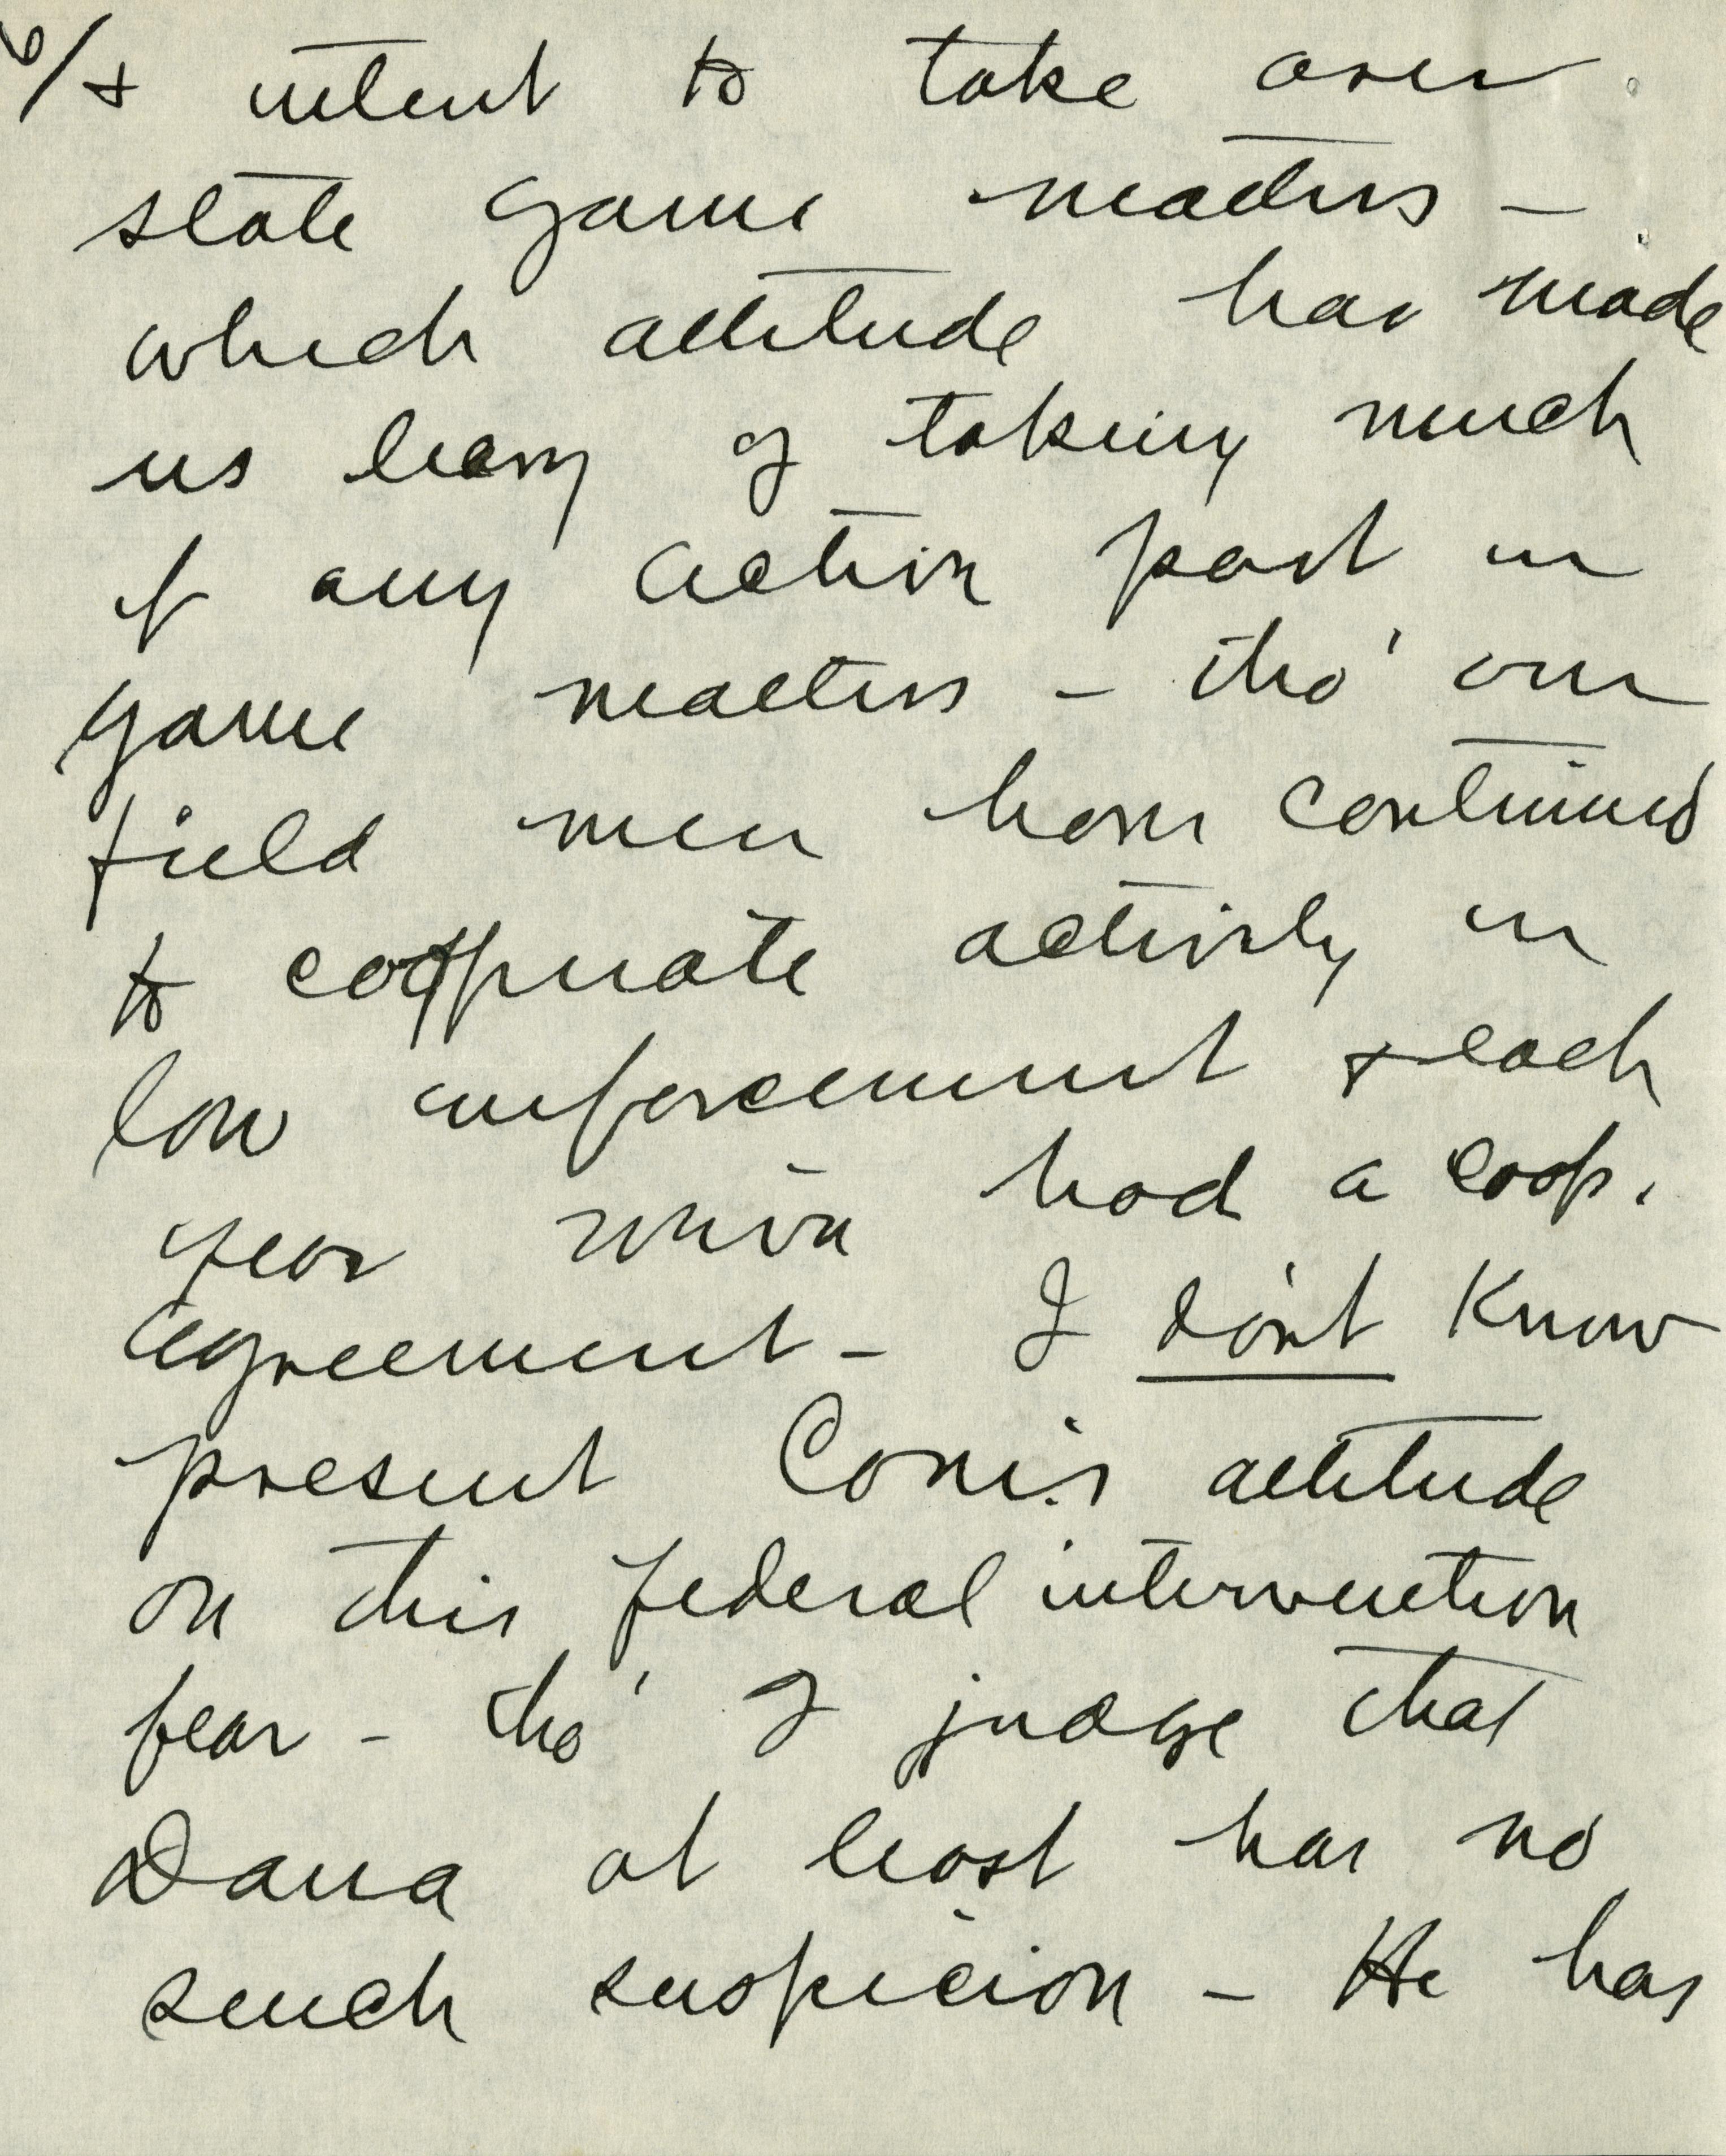 6/ & intent to take over
state game matters –
which attitude has made
us leary of taking much
if any active part in
game matters – tho' our
field men have continued
to cooperate actively in
law enforcement & each
year have had a coop.
agreement – I don't know
present Com's attitude
on this federal intervention
fear – tho' I judge that
Dana at least has no
such suspicion – He has